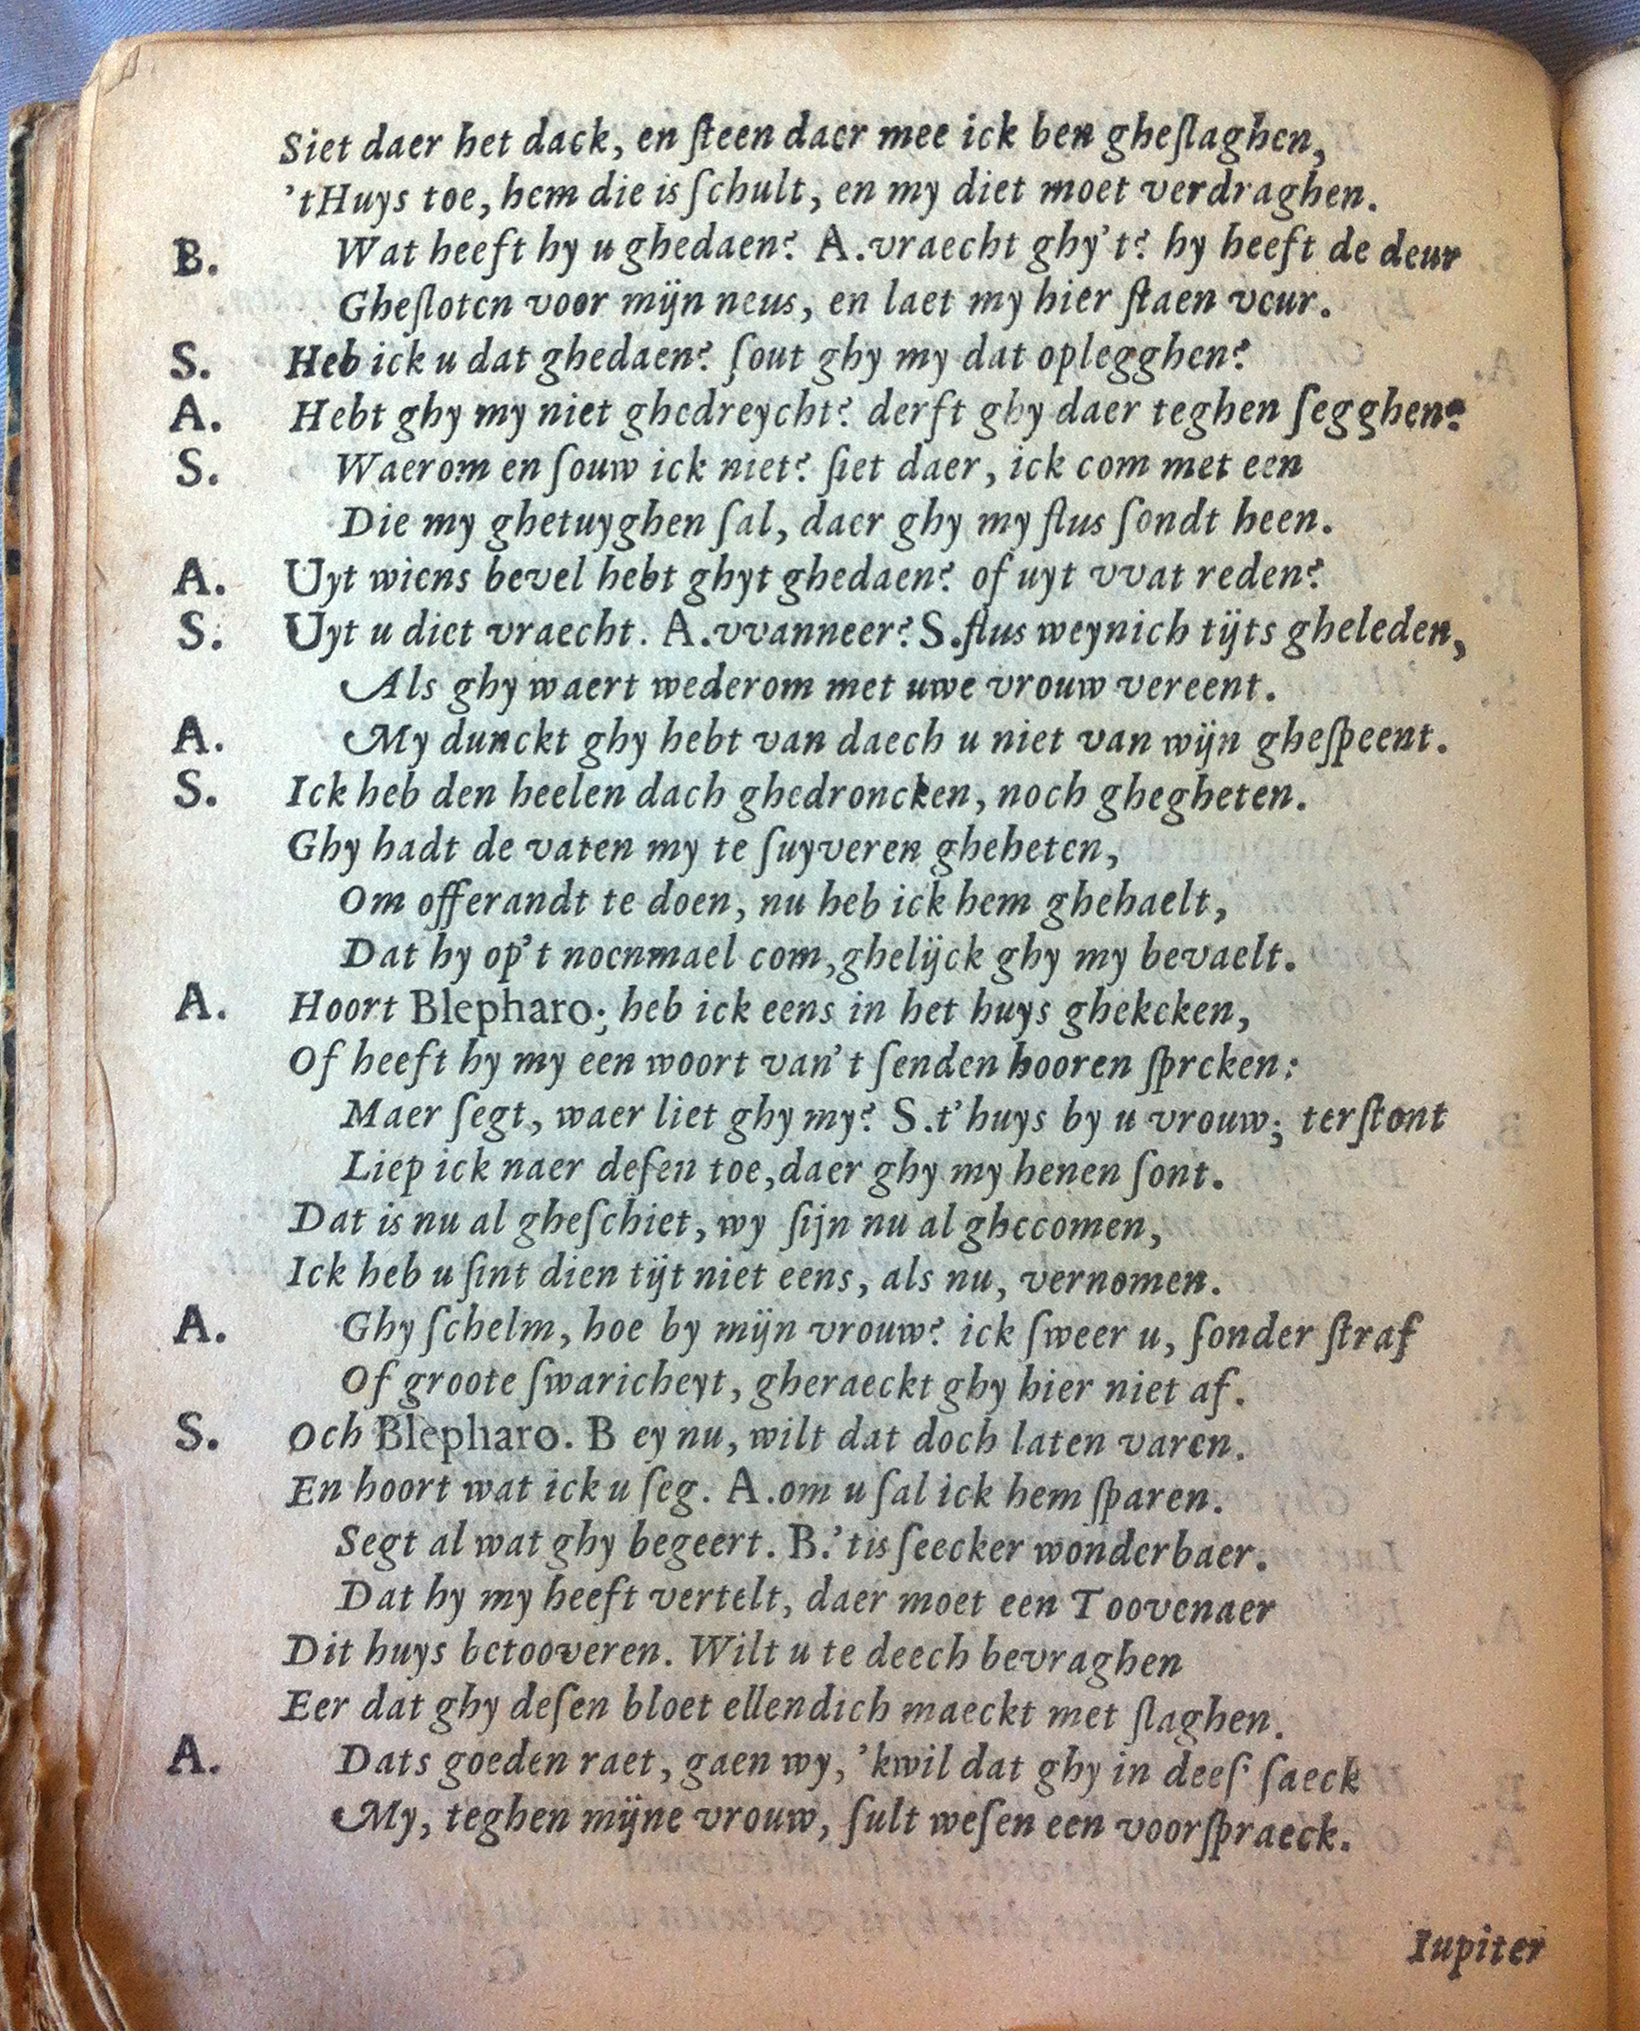 Siet daer het dack, en ſteen daer mee ick ben gheſlaghen,
'tHuys toe, hem die is ſchult, en my diet moet verdraghen.
B. Wat heeft hy u ghedaen? A.vraecht ghy't? hy heeft de deur
Gheſloten voor mijn neus, en laet my hier ſtaen veur.
S. Heb ick u dat ghedaen? ſout ghy my dat oplegghen?
A. Hebt ghy my niet ghedreycht? derft ghy daer teghen ſegghen?
S. Waerom en ſouw ick niet? ſiet daer, ick com met een
Die my ghetuyghen ſal, daer ghy my flus ſondt heen.
A. Uyt wiens bevel hebt ghyt ghedaen? of uyt vvat reden?
S. Uyt u diet vraecht. A.vvanneer? S.flus weynich tijts gheleden,
Als ghy waert wederom met uwe vrouw vereent.
A. My dunckt ghy hebt van daech u niet van wijn gheſpeent.
S. Ick heb den heelen dach ghedroncken, noch ghegheten.
Ghy hadt de vaten my te ſuyveren gheheten,
Om offerandt te doen, nu heb ick hem ghehaelt,
Dat hy op't nocnmael com,ghelijck ghy my bevaelt.
A. Hoort Blepharo; heb ick eens in het huys ghekcken,
Of heeft hy my een woort van't ſenden hooren ſprcken:
Maer ſegt, waer liet ghy my? S.t'huys by u vrouw; terſtont
Liep ick naer deſen toe,daer ghy my henen ſont.
Dat is nu al gheſchiet, wy ſijn nu al ghecomen,
Ick heb u ſint dien tijt niet eens, als nu, vernomen.
A. Ghy ſchelm, hoe by mijn vrouw? ick ſweer u, ſonder ſtraf
Of groote ſwaricheyt, gheraeckt ghy hier niet af.
S. Och Blepharo. B ey nu, wilt dat doch laten varen.
En hoort wat ick u ſeg. A.om u ſal ick hem ſparen.
Segt al wat ghy begeert. B.'tis ſeecker wonderbaer.
Dat hy my heeft vertelt, daer moet een Toovenaer
Dit huys betooveren. Wilt u te deech bevraghen
Eer dat ghy deſen bloet ellendich maeckt met ſlaghen.
A. Dats goeden raet, gaen wy, 'kwil dat ghy in deeſ' ſaeck
My, teghen mijne vrouw, ſult weſen een voorſpraeck.
Iupiter